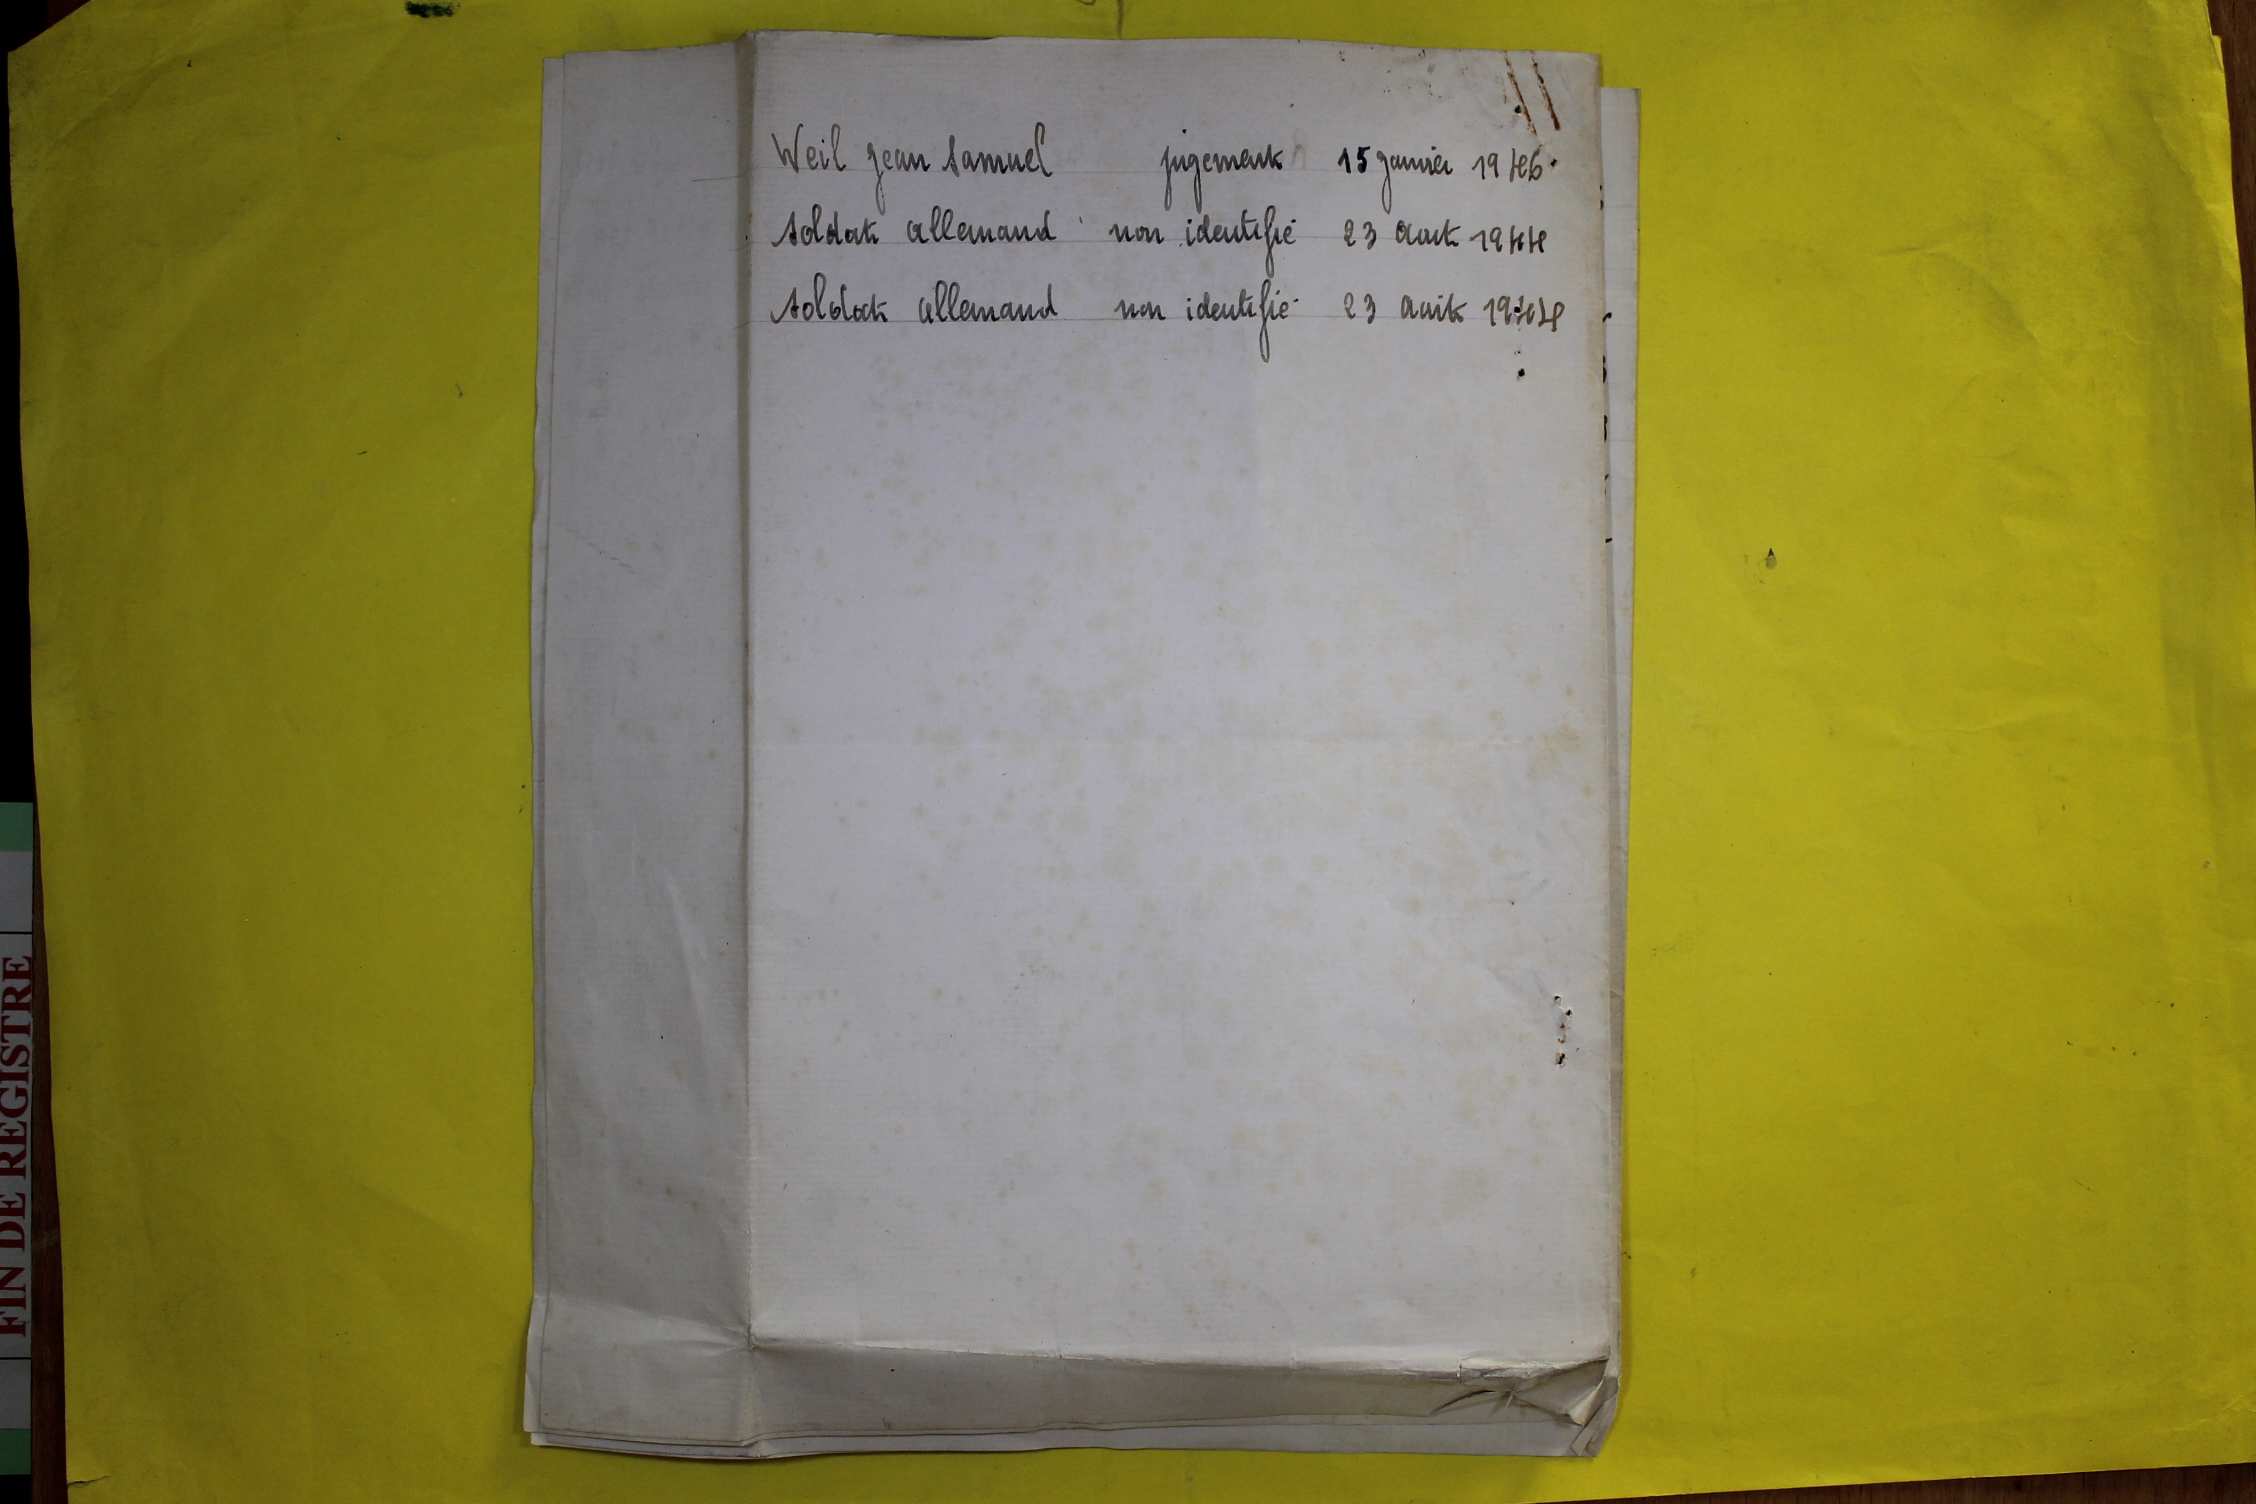 Weil Jean Samuel jugement 15 Janvier 1946.
Soldat allemand non identifié 23 Août 1944
Soldat allemand non identifié 23 Août 1944
FIN DE REGISTRE